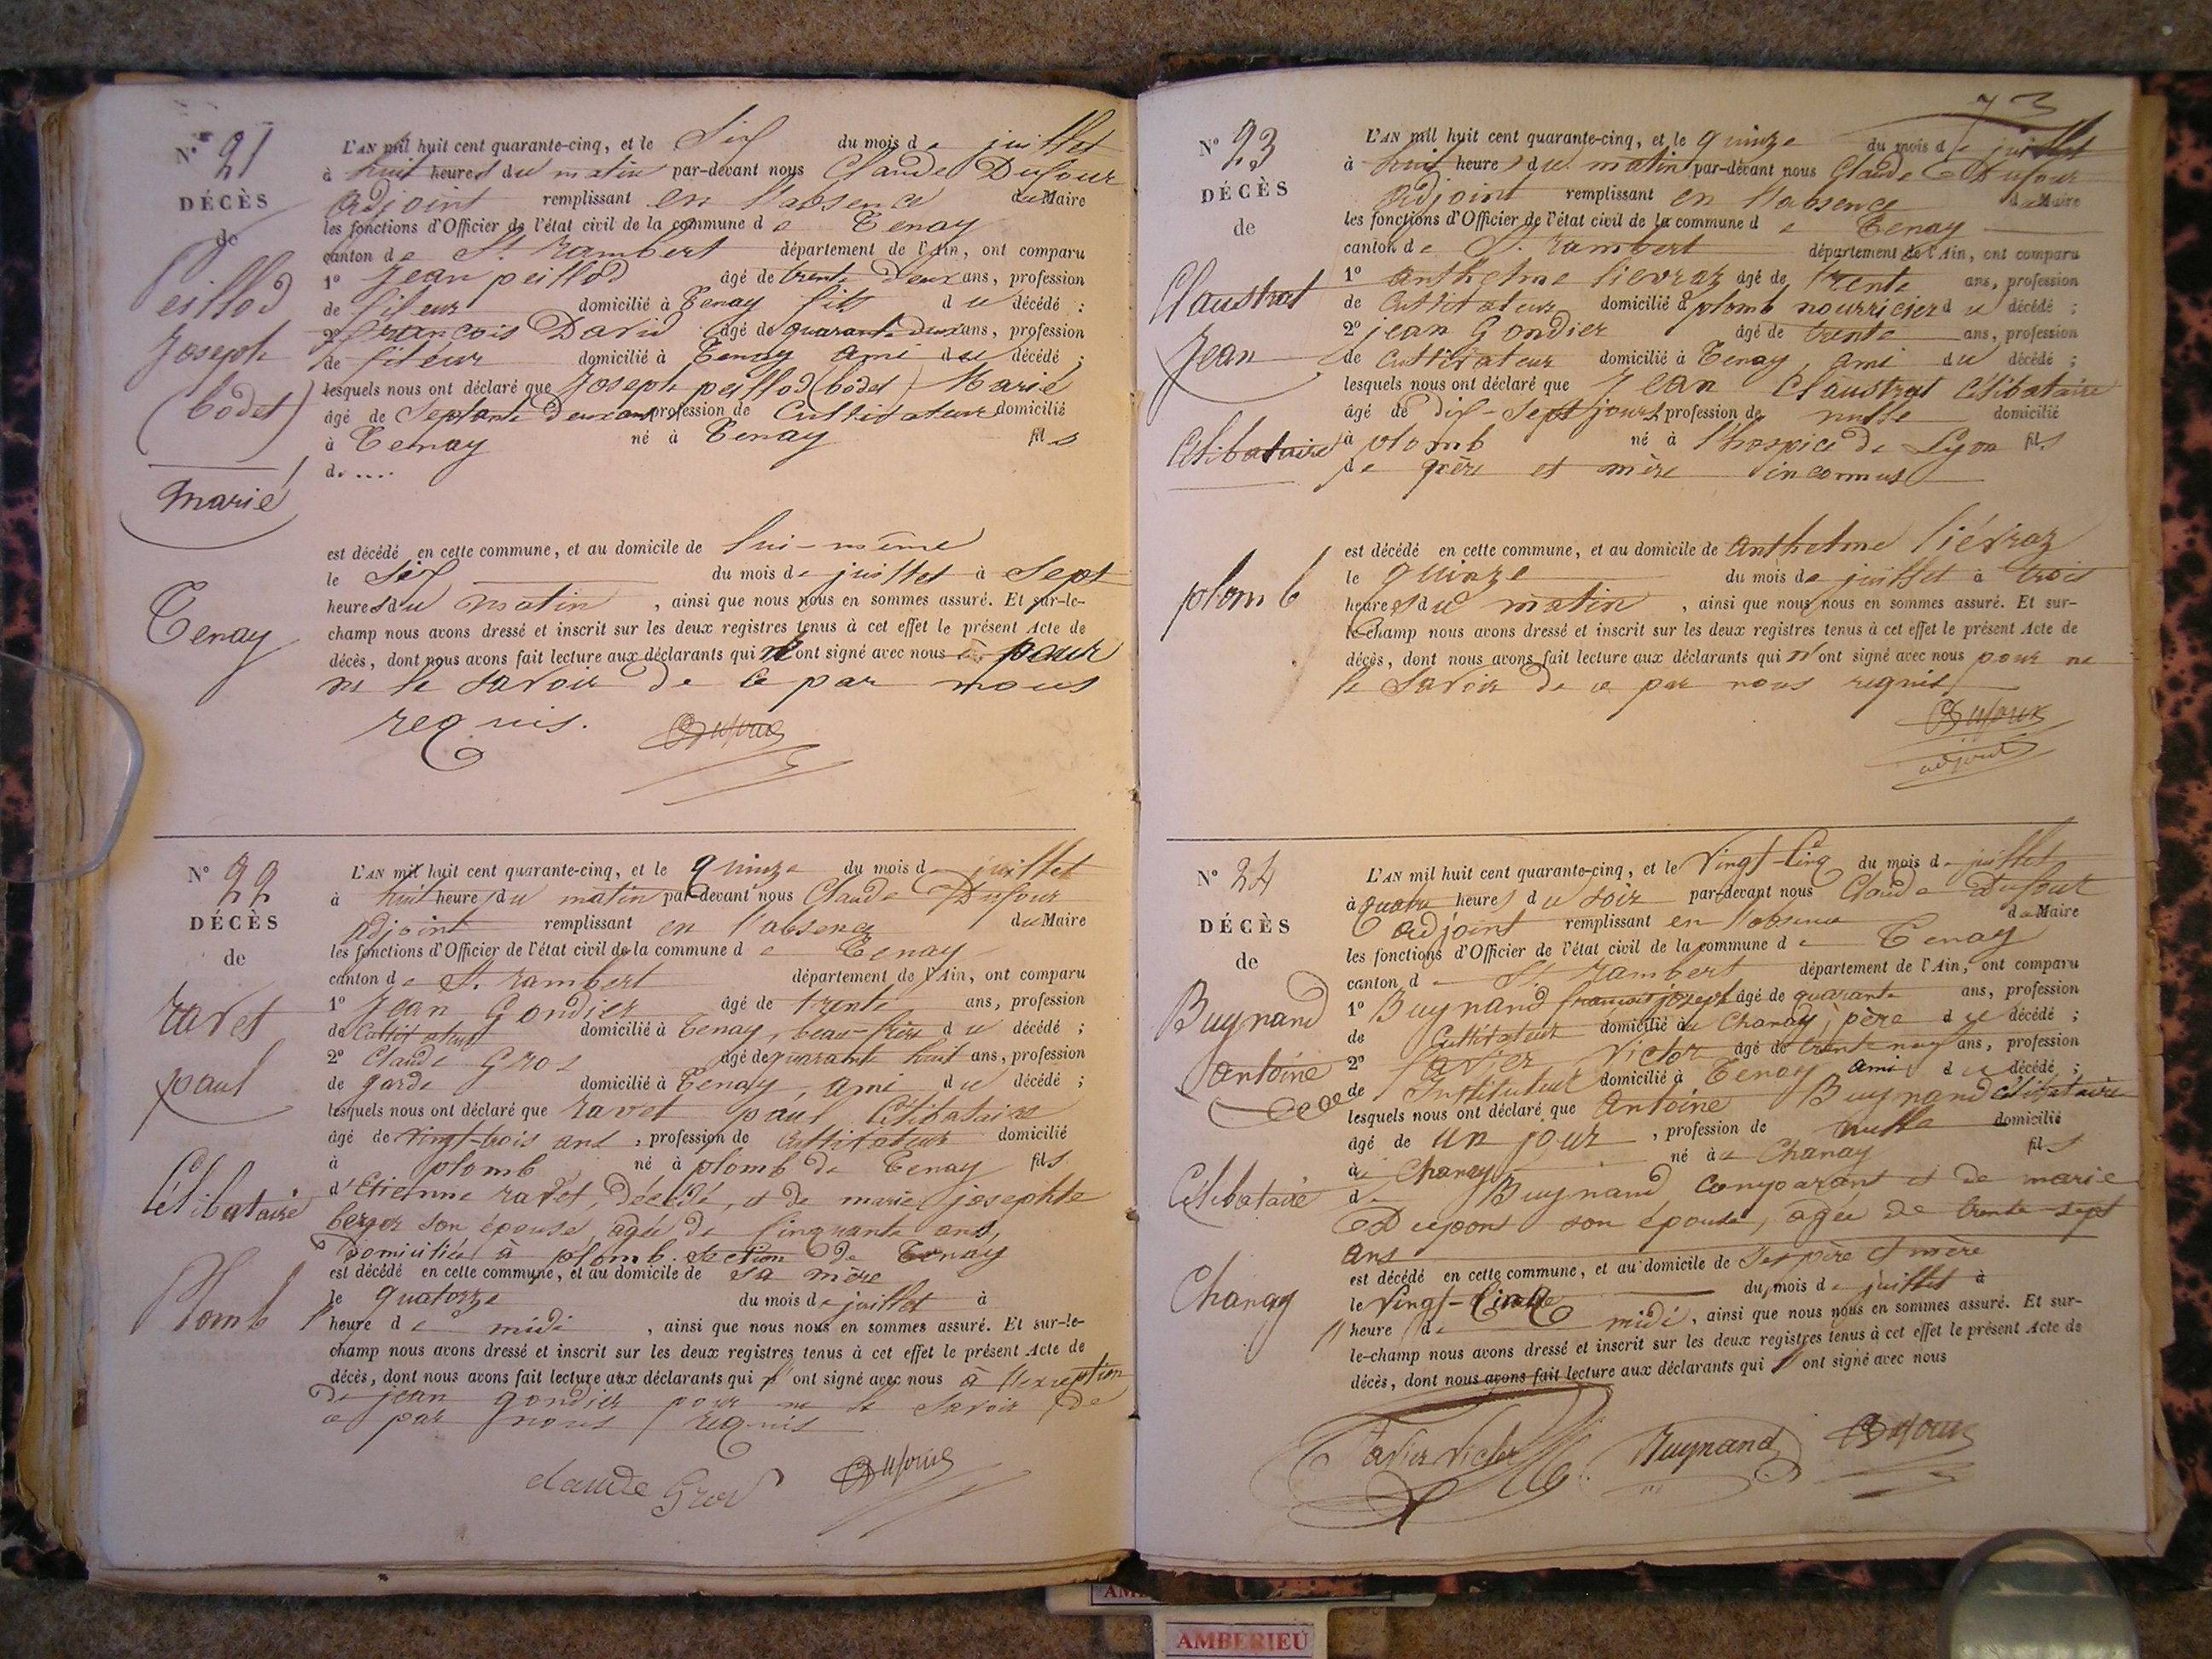 N° 21
DÉCÈS
de
Peillod
Joseph
(bodet)
Marié
Tenay
L'AN mil huit cent quarante-cinq, et le Six du mois de juillet
à huit heures du matin par-devant nous Claude Dufour
adjoint remplissant en l'absence du Maire
les fonctions d'Officier de l'état civil de la commune de Tenay
canton de St. rambert département de l'Ain, ont comparu
1° Jean peillod âgé de trente deux ans, profession
de fileur domicilié à Tenay fils du décédé ;
2° françois David âgé de quarante deux ans, profession
de fileur domicilié à Tenay ami du décédé ;
lesquels nous ont déclaré que Joseph peillod (bodet) Marié
âgé de Septante deux ans profession de Cultivateur domicilié
à Tenay né à Tenay fils
d. ....
est décédé en cette commune, et au domicile de lui-même
le Six du mois de juillet à Sept
heures du matin, ainsi que nous nous en sommes assuré. Et sur-le-
champ nous avons dressé et inscrit sur les deux registres tenus à cet effet le présent Acte de
décès, dont nous avons fait lecture aux déclarants qui n'ont signé avec nous pour
ne le savoir de ce par nous
requis. Dufour
N° 22
DÉCÈS
de
ravet
paul
Célibataire
Plomb
L'AN mil huit cent quarante-cinq, et le quinze du mois de juillet
à huit heure du matin par-devant nous Claude Dufour
adjoint remplissant en l'absence du Maire
les fonctions d'Officier de l'état civil de la commune de Tenay
canton de St. rambert département de l'Ain, ont comparu
1° Jean Gondier âgé de trente ans, profession
de Cultivateur domicilié à Tenay, beau-frère du décédé ;
2° Claude Gros âgé de quarante huit ans, profession
de garde domicilié à Tenay, ami du décédé ;
lesquels nous ont déclaré que ravet paul Célibataire
âgé de vingt-trois ans, profession de Cultivateur domicilié
à plomb né à plomb de Tenay fils
d'Etienne ravet, décédé, et de marie josephte
berger son épouse, agée de Cinquante ans,
domiciliée à plomb. Section de Tenay
est décédé en cette commune, et au domicile de sa mère
le quatorze du mois de juillet à
heure de midi, ainsi que nous nous en sommes assuré. Et sur-le-
champ nous avons dressé et inscrit sur les deux registres tenus à cet effet le présent Acte de
décès, dont nous avons fait lecture aux déclarants qui ont signé avec nous à l'exception
de jean gondier pour ne le savoir de
ce par nous requis
claude Gros Dufour
73
N° 23
DÉCÈS
de
Claustrat
Jean
Célibataire
plomb
L'AN mil huit cent quarante-cinq, et le quinze du mois de juillet
à huit heures du matin par-devant nous Claude Dufour
adjoint remplissant en l'absence du Maire
les fonctions d'Officier de l'état civil de la commune de Tenay
canton de St. rambert département de l'Ain, ont comparu
1° anthelme liévraz âgé de trente ans, profession
de Cultivateur domicilié à plomb nourricier du décédé ;
2° jean Gondier âgé de trente ans, profession
de Cultivateur domicilié à Tenay, ami du décédé ;
lesquels nous ont déclaré que Jean Claustrat Célibataire
âgé de dix-sept jours profession de nulle domicilié
à plomb né à l'hospice de Lyon fils
de père et mère inconnus
est décédé en cette commune, et au domicile de anthelme liévraz
le quinze du mois de juillet à trois
heures du matin, ainsi que nous nous en sommes assuré. Et sur-
le-champ nous avons dressé et inscrit sur les deux registres tenus à cet effet le présent Acte de
décès, dont nous avons fait lecture aux déclarants qui n'ont signé avec nous pour ne
le savoir de ce par nous requis
Dufour
adjoint
N° 24
DÉCÈS
de
Buynand
antoine
Célibataire
Chanay
L'AN mil huit cent quarante-cinq, et le Vingt-Cinq du mois de juillet
à quatre heures du soir par-devant nous Claude Dufour
adjoint remplissant en l'absence du Maire
les fonctions d'Officier de l'état civil de la commune de Tenay
canton de St. rambert département de l'Ain, ont comparu
1° Buynand françois joseph âgé de quarante ans, profession
de Cultivateur domicilié à Chanay, père du décédé ;
2° Tavier Victor âgé de trente neuf ans, profession
de Instituteur domicilié à Tenay ami du décédé ;
lesquels nous ont déclaré que antoine Buynand célibataire
âgé de un jour, profession de nulle domicilié
à Chanay né à Chanay fils
de Buynand comparant et de marie
Dupont son épouse, agée de trente-sept
ans
est décédé en cette commune, et au domicile de Ses père et mère
le Vingt-Cinq du mois de juillet à
heure de midi, ainsi que nous nous en sommes assuré. Et sur-
le-champ nous avons dressé et inscrit sur les deux registres tenus à cet effet le présent Acte de
décès, dont nous avons fait lecture aux déclarants qui ont signé avec nous
Tavier Victor Buynand Dufour
AMBERIEU